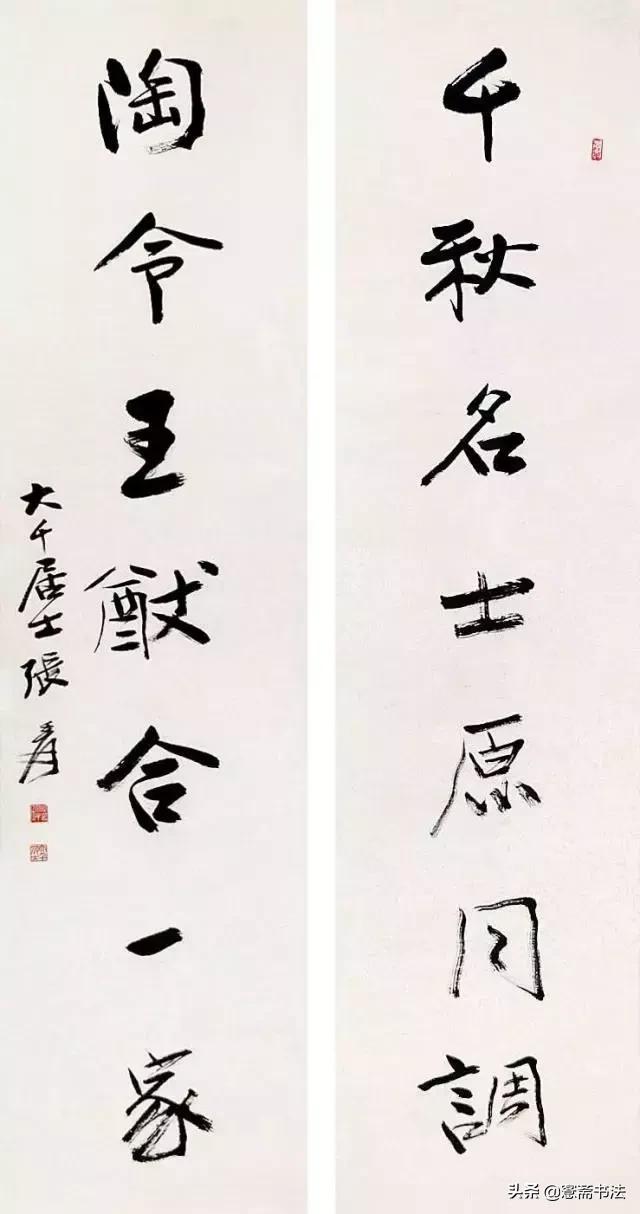 千秋名士原同調
陶令王猷合一家
大千居士張爰
头条@愙斋书法